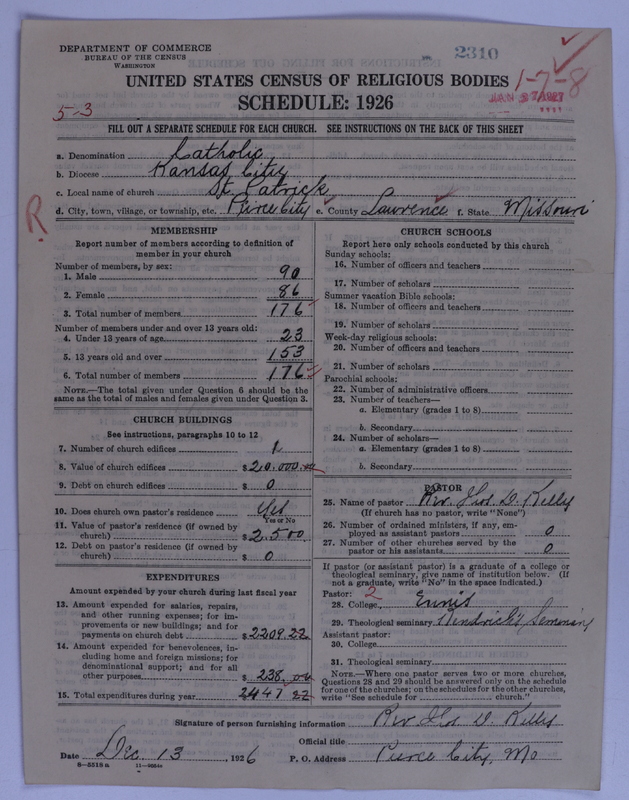 DEPARTMENT OF COMMERCE
BUREAU OF THE CENSUS
WASHINGTON
2310
UNITED STATES CENSUS OF RELIGIOUS BODIES
1-7-8
SCHEDULE: 1926
JAN 27 1927
5-3
FILL OUT A SEPARATE SCHEDULE FOR EACH CHURCH. SEE INSTRUCTIONS ON THE BACK OF THIS SHEET
a. Denomination Catholic
b. Diocese Kansas City
c. Local name of church St. Patrick
d. City, town, village, or township, etc. Pierce City e. County Lawrence f. State Missouri
R.
MEMBERSHIP
Report number of members according to definition of
member in your church
Number of members, by sex:
1. Male 90
2. Female 86
3. Total number of members 176
Number of members under and over 13 years old:
4. Under 13 years of age 23
5. 13 years old and over 153
6. Total number of members 176
NOTE.—The total given under Question 6 should be the
same as the total of males and females given under Question 3.
CHURCH BUILDINGS
See instructions, paragraphs 10 to 12
7. Number of church edifices 1
8. Value of church edifices $ 20.000.00
9. Debt on church edifices $ 0
10. Does church own pastor's residence Yes
Yes or No
11. Value of pastor's residence (if owned by
church) $ 2.500
12. Debt on pastor's residence (if owned by
church) $ 0
EXPENDITURES
Amount expended by your church during last fiscal year
13. Amount expended for salaries, repairs,
and other running expenses; for im-
provements or new buildings; and for
payments on church debt $ 2209.22
14. Amount expended for benevolences, in-
cluding home and foreign missions; for
denominational support; and for all
other purposes $ 238.00
15. Total expenditures during year 2447 22
CHURCH SCHOOLS
Report here only schools conducted by this church
Sunday schools:
16. Number of officers and teachers
17. Number of scholars
Summer vacation Bible schools:
18. Number of officers and teachers
19. Number of scholars
Week-day religious schools:
20. Number of officers and teachers
21. Number of scholars
Parochial schools:
22. Number of administrative officers
23. Number of teachers—
a. Elementary (grades 1 to 8)
b. Secondary
24. Number of scholars—
a. Elementary (grades 1 to 8)
b. Secondary
PASTOR
25. Name of pastor Rev. Thos. D. Kelly
(If church has no pastor, write "None")
26. Number of ordained ministers, if any, em-
ployed as assistant pastors 0
27. Number of other churches served by the
pastor or his assistants 0
If pastor (or assistant pastor) is a graduate of a college or
theological seminary, give name of institution below. (If
not a graduate, write "No" in the space indicated.)
Pastor: 2
28. College, Ennis
29. Theological seminary Kendrick's Seminary
Assistant pastor:
30. College
31. Theological seminary
NOTE.—Where one pastor serves two or more churches,
Questions 28 and 29 should be answered only on the schedule
for one of the churches; on the schedules for the other churches,
write "See schedule for church."
Signature of person furnishing information Rev Thos D. Kelly
Official title
Date Dec. 13, 1926 P. O. Address Pierce City, Mo
8-5518a